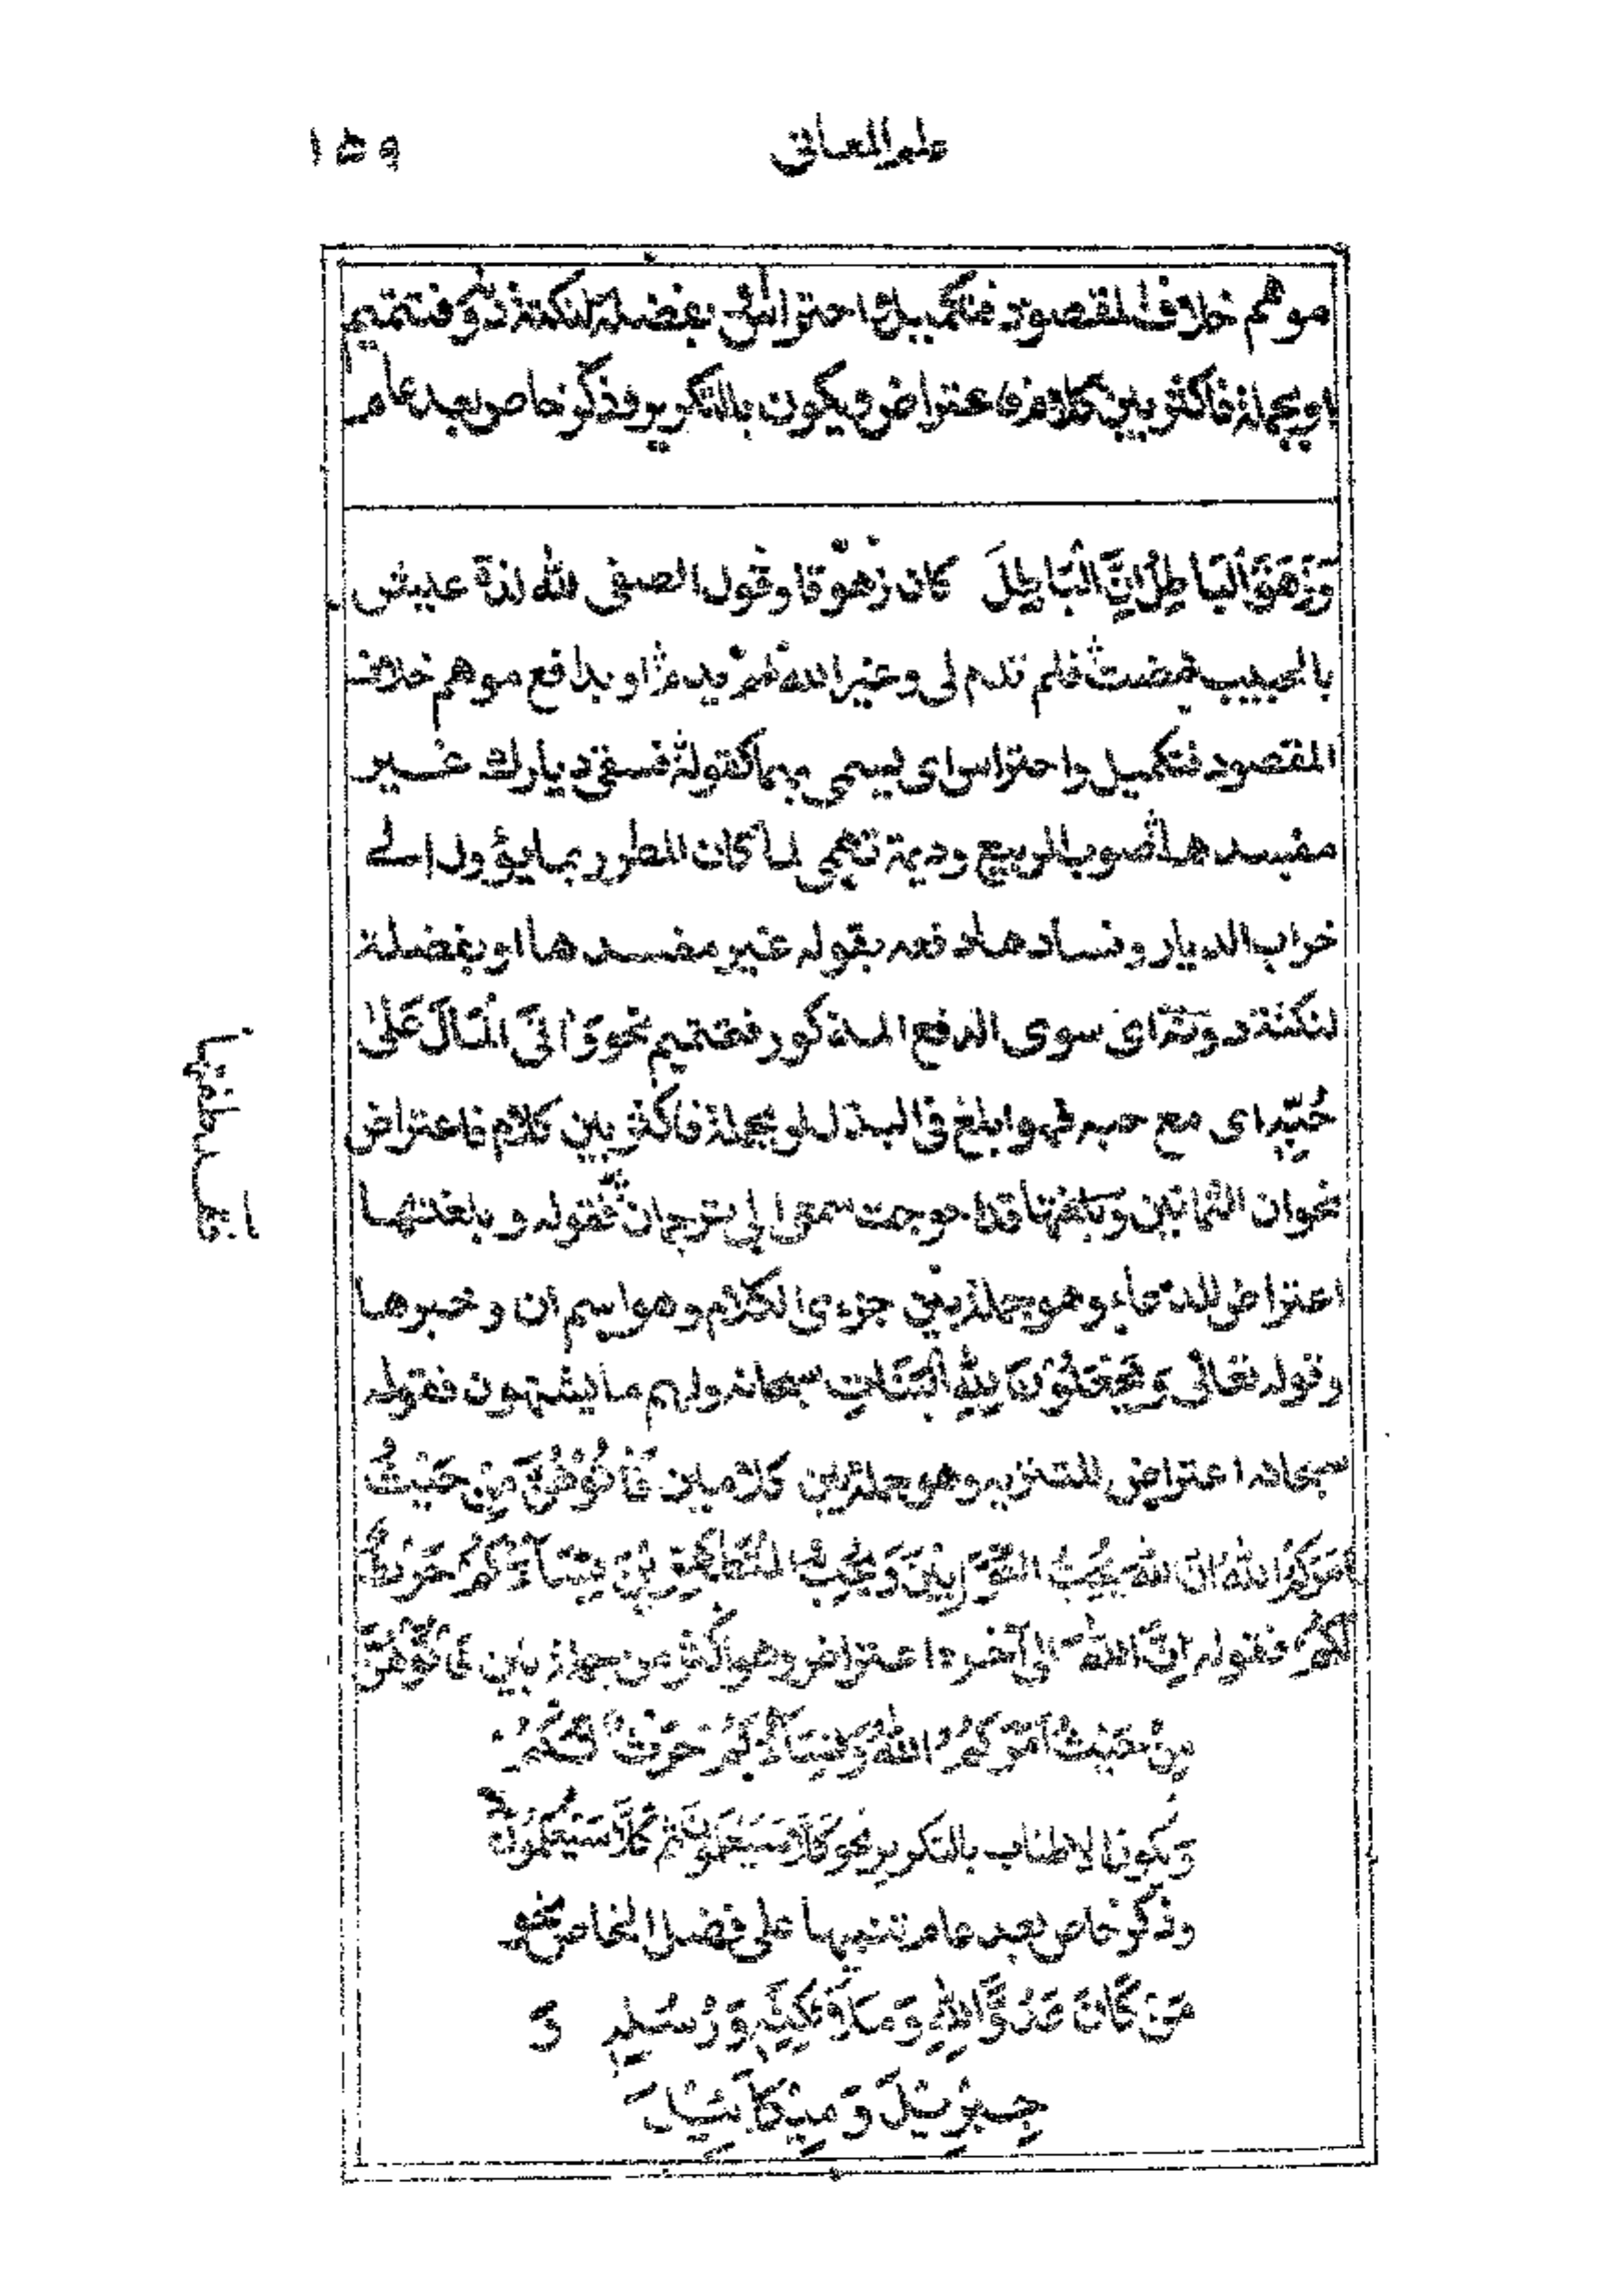 علم المعانى
١٥٩
موهم خلاف المقصود فتكميل واحتراس او بفضلة لنكتة دونه فتتميم
او بجملة فاكثر بين كلام فاعتراض ويكون بالتكرير وذكر خاص بعد عام
وَزَهَقَ الْبَاطِلُ اِنَّ الْبَاطِلَ كان زَهُوْقا وقول الصفى لله لذة عيش
بالحبيب مضت فلم تدم لى وغير الله لم يدم او بدافع موهم خلاف
المقصود فتكميل واحتراس اى يسمى بهما كقوله فسقى ديارك غير
مفسدها صوب الربيع وديمة تهمى لما كان المطر ربما يؤول الى
خراب الديار وفسادها دفعه بقوله غير مفسدها او بفضلة
لنكتة دونه اى سوى الدفع المذكور فتتميم نحو وَاٰتَى الْمَالَ عَلٰى
حُبِّهٖ اى مع حبه فهو ابلغ فى البذل او بجملة فاكثر بين كلام فاعتراض
نحو ان الثمانين وَبُلِّغْتَها قد احوجت سمعى الى ترجمان فقوله وبلغتها
اعتراض للدعاء وهو جملة بين جزءى الكلام وهو اسم ان وخبرها
وقوله تعالى وَيَجْعَلُوْنَ لِلّٰهِ الْبَنَاتِ سبحانه ولهم ما يشتهون فقوله
سبحانه اعتراض للتنزيه وهو جملة بين كلامين فَاْتُوْهُنَّ مِنْ حَيْثُ
اَمَرَكُمُ اللّٰهُ اِنَّ اللّٰهَ يُحِبُّ التَّوَّابِيْنَ وَيُحِبُّ الْمُتَطَهِّرِيْنَ نِسَآؤُكُمْ حَرْثٌ
لَّكُمْ فقوله اِنَّ اللّٰهَ الى آخره اعتراض وهو اكثر من جملة بين فَاْتُوْهُنَّ
مِنْ حَيْثُ اَمَرَكُمُ اللّٰهُ وَنِسَآؤُكُمْ حَرْثٌ لَّكُمْ
ويكون الاطناب بالتكرير نحو كَلَّا سَيَعْلَمُوْنَ ثُمَّ كَلَّا سَيَعْلَمُوْنَ
وذكر خاص بعد عام تنبيها على فضل الخاص نحو
مَنْ كَانَ عَدُوًّا لِّلّٰهِ وَمَلٰٓئِكَتِهٖ وَرُسُلِهٖ وَ
جِبْرِيْلَ وَمِيْكَآئِيْلَ